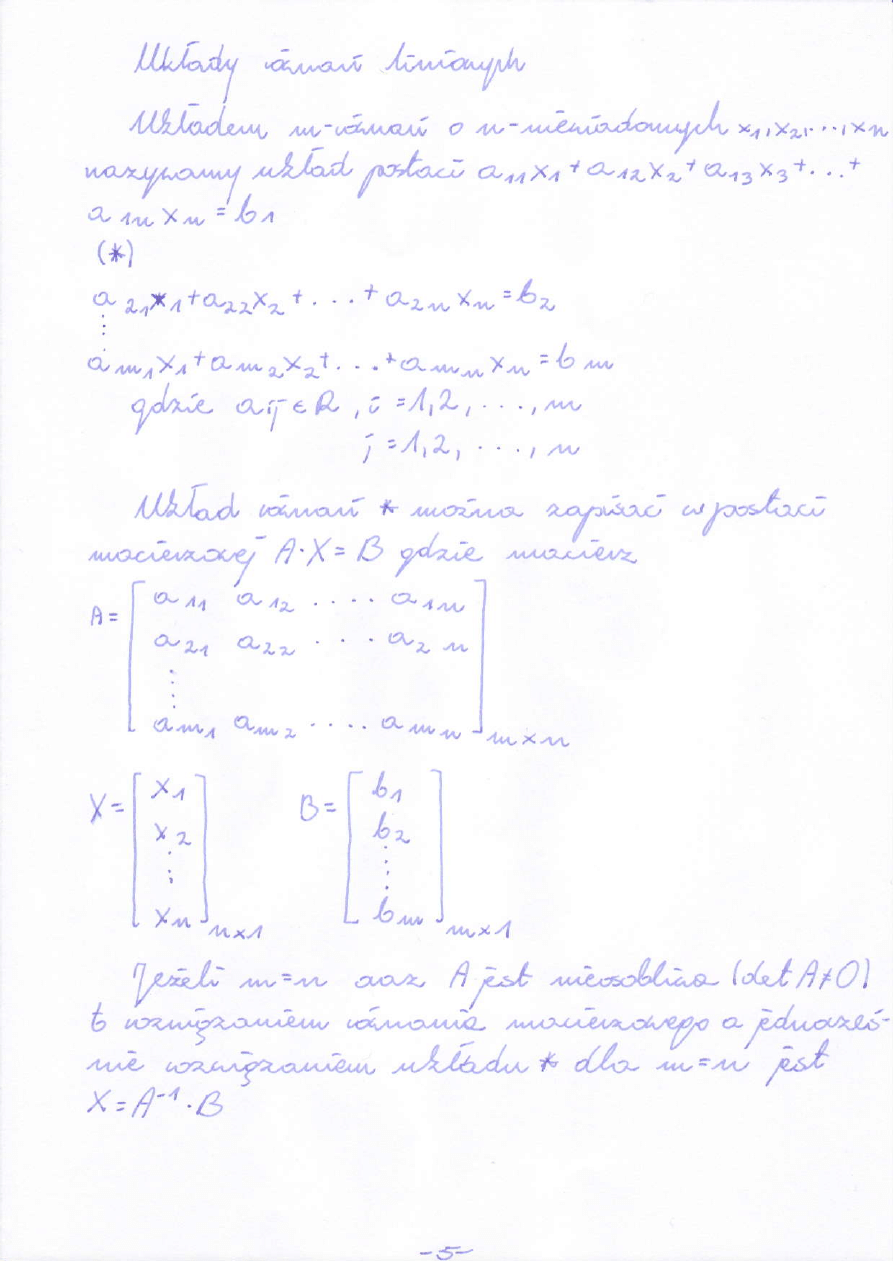 Układy równań liniowych
Układem m-równań o n-niewiadomych x₁, x₂, ..., xn
nazywamy układ postaci a₁₁x₁ + a₁₂x₂ + a₁₃x₃ + ... +
a₁n xn = b₁
(*)
a₂₁x₁ + a₂₂x₂ + ... + a₂n xn = b₂
⋮
am₁x₁ + am₂x₂ + ... + amn xn = bm
gdzie aij ∈ R, i = 1,2, ..., m
j = 1,2, ..., n
Układ równań * można zapisać w postaci
macierzowej A·X = B gdzie macierz
A = [ a₁₁ a₁₂ .... a₁n
a₂₁ a₂₂ ... a₂n
⋮
am₁ am₂ .... amn ] m×n
X = [ x₁ x₂ ⋮ xn ] n×1 B = [ b₁ b₂ ⋮ bm ] m×1
Jeżeli m=n oraz A jest nieosobliwa (det A≠0)
to rozwiązaniem równania macierzowego a jednocześ-
nie rozwiązaniem układu * dla m=n jest
X = A⁻¹·B
-5-